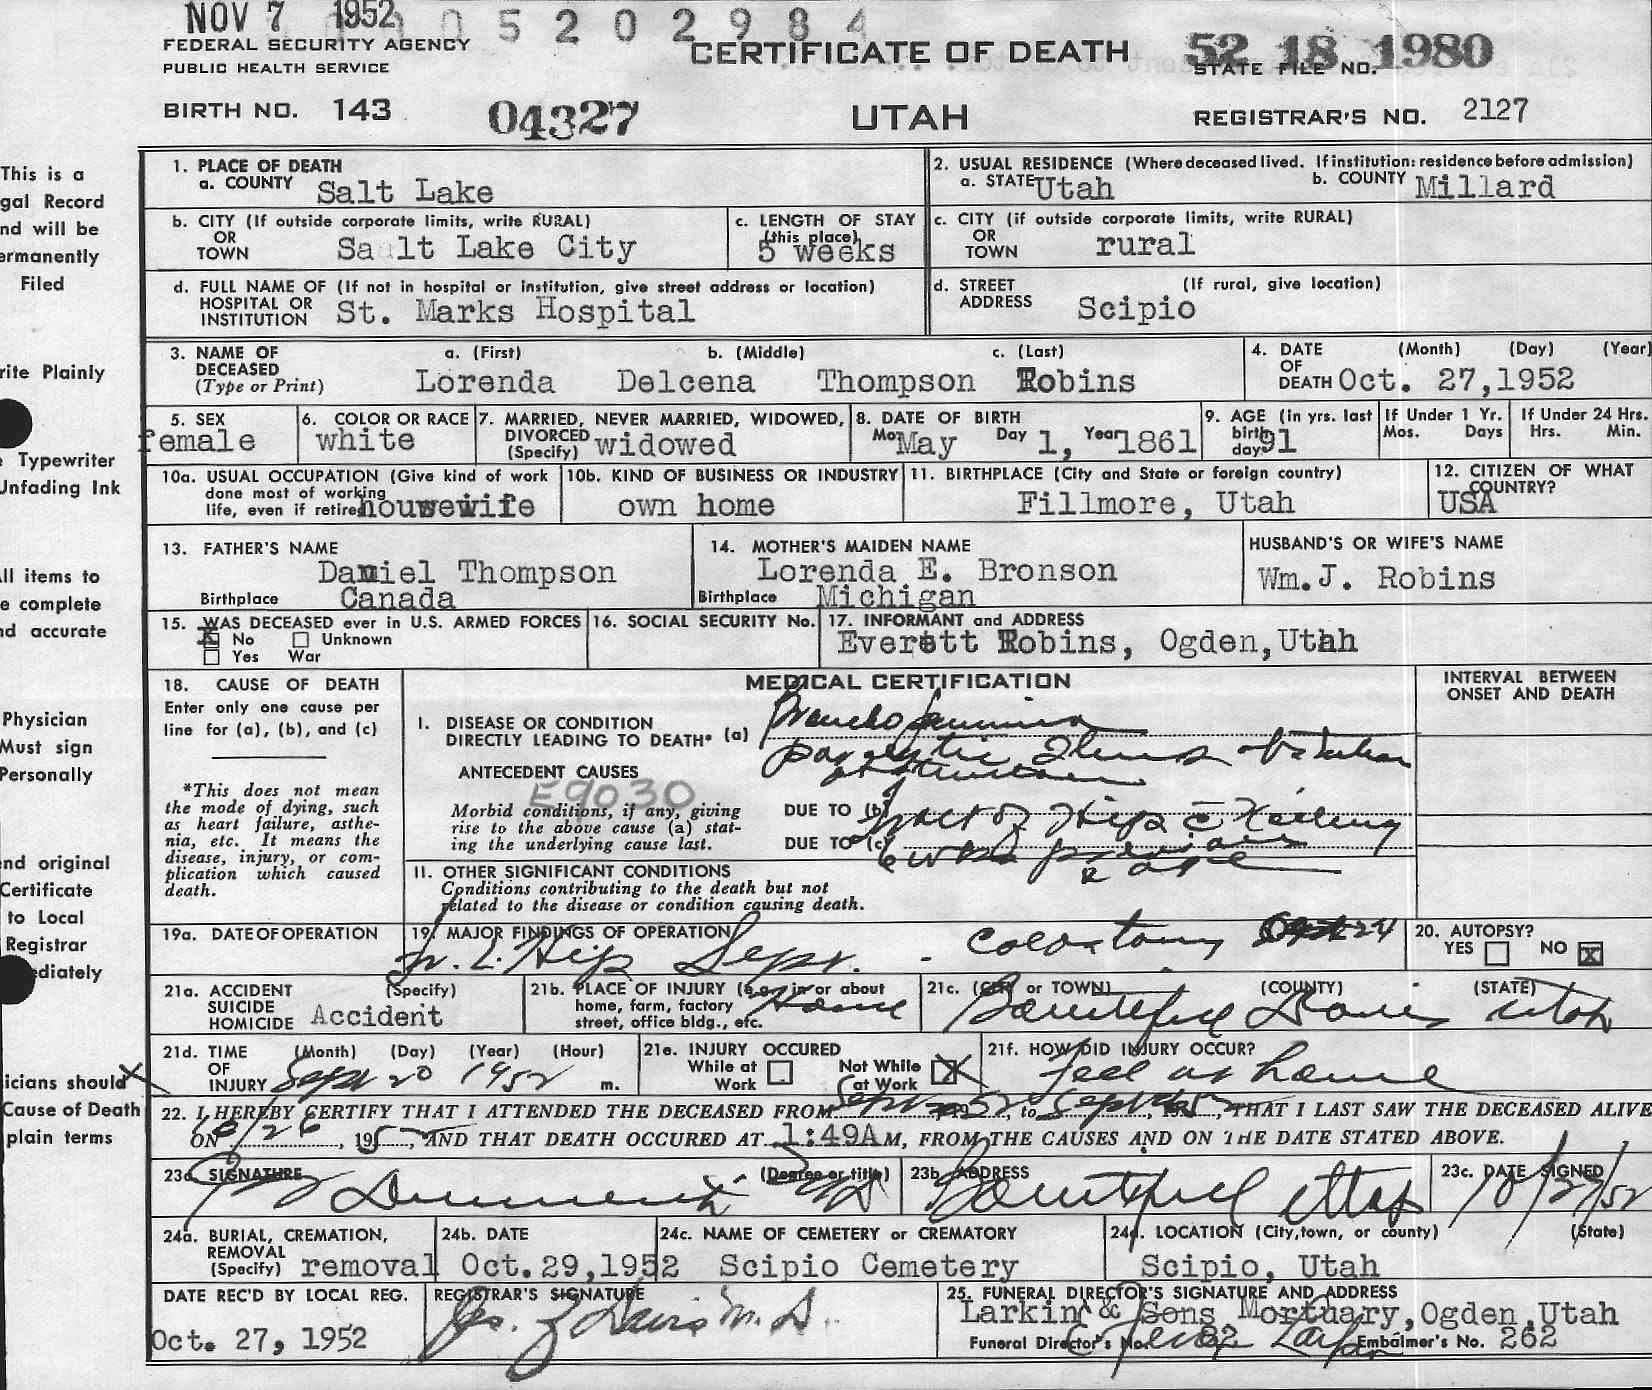 NOV 7 1952
0 5 2 0 2 9 8 4
FEDERAL SECURITY AGENCY
PUBLIC HEALTH SERVICE
CERTIFICATE OF DEATH
52 18 1980
STATE FILE NO.
BIRTH NO. 143
04327
UTAH
REGISTRAR'S NO. 2127
This is a
gal Record
nd will be
ermanently
Filed
rite Plainly
e Typewriter
Unfading Ink
ll items to
e complete
nd accurate
Physician
Must sign
Personally
nd original
Certificate
to Local
Registrar
ediately
icians should
Cause of Death
plain terms
1. PLACE OF DEATH
a. COUNTY Salt Lake
2. USUAL RESIDENCE (Where deceased lived. If institution: residence before admission)
a. STATE Utah b. COUNTY Millard
b. CITY (If outside corporate limits, write RURAL)
OR
TOWN Sa lt Lake City
c. LENGTH OF STAY
(this place)
5 weeks
c. CITY (if outside corporate limits, write RURAL)
OR
TOWN rural
d. FULL NAME OF (If not in hospital or institution, give street address or location)
HOSPITAL OR
INSTITUTION St. Marks Hospital
d. STREET (If rural, give location)
ADDRESS Scipio
3. NAME OF a. (First) b. (Middle) c. (Last)
DECEASED
(Type or Print) Lorenda Delcena Thompson Robins
4. DATE (Month) (Day) (Year)
OF
DEATH Oct. 27,1952
5. SEX
female
6. COLOR OR RACE
white
7. MARRIED, NEVER MARRIED, WIDOWED,
DIVORCED
(Specify) widowed
8. DATE OF BIRTH
Mo. May Day 1, Year 1861
9. AGE (in yrs. last
birth
day) 91
If Under 1 Yr.
Mos. Days
If Under 24 Hrs.
Hrs. Min.
10a. USUAL OCCUPATION (Give kind of work
done most of working
life, even if retired housewife
10b. KIND OF BUSINESS OR INDUSTRY
own home
11. BIRTHPLACE (City and State or foreign country)
Fillmore, Utah
12. CITIZEN OF WHAT
COUNTRY?
USA
13. FATHER'S NAME
Daniel Thompson
Birthplace Canada
14. MOTHER'S MAIDEN NAME
Lorenda E. Bronson
Birthplace Michigan
HUSBAND'S OR WIFE'S NAME
Wm.J. Robins
15. WAS DECEASED ever in U.S. ARMED FORCES
X No Unknown
Yes War
16. SOCIAL SECURITY No.
17. INFORMANT and ADDRESS
Everett Robins, Ogden,Utah
18. CAUSE OF DEATH
Enter only one cause per
line for (a), (b), and (c)
*This does not mean
the mode of dying, such
as heart failure, asthe-
nia, etc. It means the
disease, injury, or com-
plication which caused
death.
MEDICAL CERTIFICATION
INTERVAL BETWEEN
ONSET AND DEATH
I. DISEASE OR CONDITION
DIRECTLY LEADING TO DEATH* (a)
paralytic Ileus
obstruction
ANTECEDENT CAUSES
E9030
Morbid conditions, if any, giving
rise to the above cause (a) stat-
ing the underlying cause last.
DUE TO (b) Fract of Hip
DUE TO (c) 6 wks previous
age
II. OTHER SIGNIFICANT CONDITIONS
Conditions contributing to the death but not
related to the disease or condition causing death.
19a. DATE OF OPERATION
19. MAJOR FINDINGS OF OPERATION
Hip Sept. - Colostomy 24
20. AUTOPSY?
YES NO X
21a. ACCIDENT (Specify)
SUICIDE
HOMICIDE Accident
21b. PLACE OF INJURY (e.g., in or about
home, farm, factory
street, office bldg., etc.
Home
21c. (CITY or TOWN) (COUNTY) (STATE)
Bountiful Davis Utah
21d. TIME (Month) (Day) (Year) (Hour)
OF
INJURY Sept 20 1952 m.
21e. INJURY OCCURED
While at Not While
Work at Work X
21f. HOW DID INJURY OCCUR?
Feel at home
22. I HEREBY CERTIFY THAT I ATTENDED THE DECEASED FROM Sept 1952, to Sept, 195, THAT I LAST SAW THE DECEASED ALIVE
ON 10/26, 195, AND THAT DEATH OCCURED AT 1:49A M, FROM THE CAUSES AND ON THE DATE STATED ABOVE.
23a. SIGNATURE (Degree or title)
MD
23b. ADDRESS
Bountiful Utah
23c. DATE SIGNED
10/27/52
24a. BURIAL, CREMATION,
REMOVAL
(Specify) removal
24b. DATE
Oct.29,1952
24c. NAME OF CEMETERY or CREMATORY
Scipio Cemetery
24d. LOCATION (City,town, or county) (State)
Scipio, Utah
DATE REC'D BY LOCAL REG.
Oct. 27, 1952
REGISTRAR'S SIGNATURE
Geo. Z Davis M.D.
25. FUNERAL DIRECTOR'S SIGNATURE AND ADDRESS
Larkin & Sons Mortuary,Ogden,Utah
Funeral Director's No. 82 Embalmer's No. 262